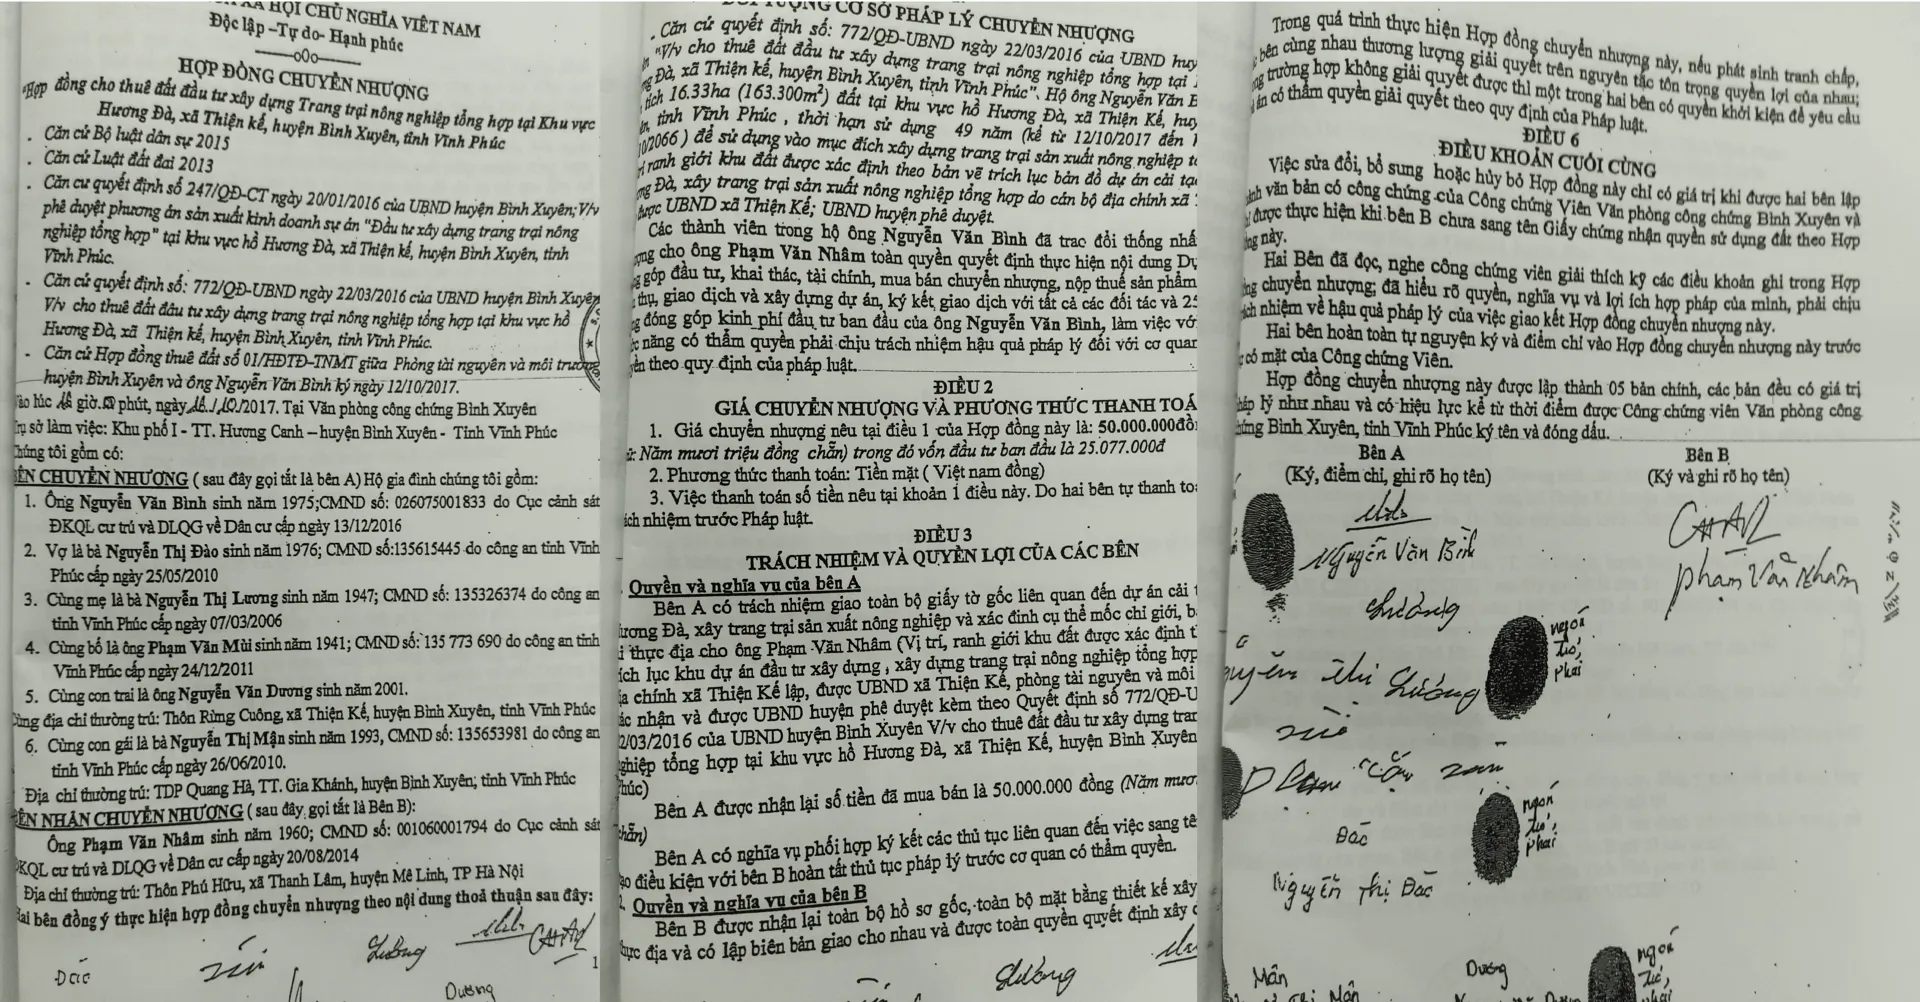 XÃ HỘI CHỦ NGHĨA VIỆT NAM
Độc lập –Tự do- Hạnh phúc
---o0o---
HỢP ĐỒNG CHUYỂN NHƯỢNG
"Hợp đồng cho thuê đất đầu tư xây dựng Trang trại nông nghiệp tổng hợp tại Khu vực
Hương Đà, xã Thiện kế, huyện Bình Xuyên, tỉnh Vĩnh Phúc
. Căn cứ Bộ luật dân sự 2015
. Căn cứ Luật đất đai 2013
. Căn cư quyết định số 247/QĐ-CT ngày 20/01/2016 của UBND huyện Bình Xuyên; V/v
phê duyệt phương án sản xuất kinh doanh sự án "Đầu tư xây dựng trang trại nông
nghiệp tổng hợp" tại khu vực hồ Hương Đà, xã Thiện kế, huyện Bình Xuyên, tỉnh
Vĩnh Phúc.
- Căn cứ quyết định số: 772/QĐ-UBND ngày 22/03/2016 của UBND huyện Bình Xuyên
V/v cho thuê đất đầu tư xây dựng trang trại nông nghiệp tổng hợp tại khu vực hồ
Hương Đà, xã Thiện kế, huyện Bình Xuyên, tỉnh Vĩnh Phúc.
- Căn cứ Hợp đồng thuê đất số 01/HĐTĐ-TNMT giữa Phòng tài nguyên và môi trường
huyện Bình Xuyên và ông Nguyễn Văn Bình ký ngày 12/10/2017.
giờ phút, ngày /10/2017. Tại Văn phòng công chứng Bình Xuyên
sở làm việc: Khu phố I - TT. Hương Canh – huyện Bình Xuyên - Tỉnh Vĩnh Phúc
Chúng tôi gồm có:
BÊN CHUYỂN NHƯỢNG ( sau đây gọi tắt là bên A) Hộ gia đình chúng tôi gồm:
1. Ông Nguyễn Văn Bình sinh năm 1975;CMND số: 026075001833 do Cục cảnh sát
ĐKQL cư trú và DLQG về Dân cư cấp ngày 13/12/2016
2. Vợ là bà Nguyễn Thị Đào sinh năm 1976; CMND số:135615445 do công an tỉnh Vĩnh
Phúc cấp ngày 25/05/2010
3. Cùng mẹ là bà Nguyễn Thị Lương sinh năm 1947; CMND số: 135326374 do công an
tỉnh Vĩnh Phúc cấp ngày 07/03/2006
4. Cùng bố là ông Phạm Văn Mùi sinh năm 1941; CMND số: 135 773 690 do công an tỉnh
Vĩnh Phúc cấp ngày 24/12/2011
5. Cùng con trai là ông Nguyễn Văn Dương sinh năm 2001.
Cùng địa chỉ thường trú: Thôn Rừng Cuông, xã Thiện Kế, huyện Bình Xuyên, tỉnh Vĩnh Phúc
6. Cùng con gái là bà Nguyễn Thị Mận sinh năm 1993, CMND số: 135653981 do công an
tỉnh Vĩnh Phúc cấp ngày 26/06/2010.
Địa chỉ thường trú: TDP Quang Hà, TT. Gia Khánh, huyện Bình Xuyên, tỉnh Vĩnh Phúc
BÊN NHẬN CHUYỂN NHƯỢNG ( sau đây gọi tắt là Bên B):
Ông Phạm Văn Nhâm sinh năm 1960; CMND số: 001060001794 do Cục cảnh sát
ĐKQL cư trú và DLQG về Dân cư cấp ngày 20/08/2014
Địa chỉ thường trú: Thôn Phú Hữu, xã Thanh Lâm, huyện Mê Linh, TP Hà Nội
Hai bên đồng ý thực hiện hợp đồng chuyển nhượng theo nội dung thoả thuận sau đây:
Đào
Lương
Dương
1
TƯỢNG CƠ SỞ PHÁP LÝ CHUYỂN NHƯỢNG
. Căn cứ quyết định số: 772/QĐ-UBND ngày 22/03/2016 của UBND huy
"V/v cho thuê đất đầu tư xây dựng trang trại nông nghiệp tổng hợp tại
g Đà, xã Thiện kế, huyện Bình Xuyên, tỉnh Vĩnh Phúc". Hộ ông Nguyễn Văn B
tích 16.33ha (163.300m²) đất tại khu vực hồ Hương Đà, xã Thiện Kế, huy
tỉnh Vĩnh Phúc , thời hạn sử dụng 49 năm (kể từ 12/10/2017 đến
/2066 ) để sử dụng vào mục đích xây dựng trang trại sản xuất nông nghiệp t
ranh giới khu đất được xác định theo bản vẽ trích lục bản đồ dự án cải tạ
g Đà, xây trang trại sản xuất nông nghiệp tổng hợp do cán bộ địa chính xã
được UBND xã Thiện Kế; UBND huyện phê duyệt.
Các thành viên trong hộ ông Nguyễn Văn Bình đã trao đổi thống nhấ
cho ông Phạm Văn Nhâm toàn quyền quyết định thực hiện nội dung Dự
góp đầu tư, khai thác, tài chính, mua bán chuyển nhượng, nộp thuế sản phẩm
thụ, giao dịch và xây dựng dự án, ký kết giao dịch với tất cả các đối tác và 25
đóng góp kinh phí đầu tư ban đầu của ông Nguyễn Văn Bình, làm việc vớ
năng có thẩm quyền phải chịu trách nhiệm hậu quả pháp lý đối với cơ quan
theo quy định của pháp luật.
ĐIỀU 2
GIÁ CHUYỂN NHƯỢNG VÀ PHƯƠNG THỨC THANH TOÁ
1. Giá chuyển nhượng nêu tại điều 1 của Hợp đồng này là: 50.000.000đồ
: Năm mươi triệu đồng chẵn) trong đó vốn đầu tư ban đầu là 25.077.000đ
2. Phương thức thanh toán: Tiền mặt ( Việt nam đồng)
3. Việc thanh toán số tiền nêu tại khoản 1 điều này. Do hai bên tự thanh to
ách nhiệm trước Pháp luật.
ĐIỀU 3
TRÁCH NHIỆM VÀ QUYỀN LỢI CỦA CÁC BÊN
. Quyền và nghĩa vụ của bên A
Bên A có trách nhiệm giao toàn bộ giấy tờ gốc liên quan đến dự án cải t
ương Đà, xây trang trại sản xuất nông nghiệp và xác định cụ thể mốc chỉ giới, b
thực địa cho ông Phạm Văn Nhâm (Vị trí, ranh giới khu đất được xác định t
ích lục khu dự án đầu tư xây dựng , xây dựng trang trại nông nghiệp tổng hợp
a chính xã Thiện Kế lập, được UBND xã Thiện Kế, phòng tài nguyên và môi
ác nhận và được UBND huyện phê duyệt kèm theo Quyết định số 772/QĐ-U
2/03/2016 của UBND huyện Bình Xuyên V/v cho thuê đất đầu tư xây dựng tran
ghiệp tổng hợp tại khu vực hồ Hương Đà, xã Thiện Kế, huyện Bình Xuyên
húc)
Bên A được nhận lại số tiền đã mua bán là 50.000.000 đồng (Năm mươ
hẵn)
Bên A có nghĩa vụ phối hợp ký kết các thủ tục liên quan đến việc sang tê
ạo điều kiện với bên B hoàn tất thủ tục pháp lý trước cơ quan có thẩm quyền.
2. Quyền và nghĩa vụ của bên B
Bên B được nhận lại toàn bộ hồ sơ gốc, toàn bộ mặt bằng thiết kế xây
hực địa và có lập biên bản giao cho nhau và được toàn quyền quyết định xây d
Lương
Trong quá trình thực hiện Hợp đồng chuyển nhượng này, nếu phát sinh tranh chấp,
bên cùng nhau thương lượng giải quyết trên nguyên tắc tôn trọng quyền lợi của nhau;
ng trường hợp không giải quyết được thì một trong hai bên có quyền khởi kiện để yêu cầu
án có thẩm quyền giải quyết theo quy định của Pháp luật.
ĐIỀU 6
ĐIỀU KHOẢN CUỐI CÙNG
Việc sửa đổi, bổ sung hoặc hủy bỏ Hợp đồng này chỉ có giá trị khi được hai bên lập
văn bản có công chứng của Công chứng Viên Văn phòng công chứng Bình Xuyên và
được thực hiện khi bên B chưa sang tên Giấy chứng nhận quyền sử dụng đất theo Hợp
ng này.
Hai Bên đã đọc, nghe công chứng viên giải thích kỹ các điều khoản ghi trong Hợp
ng chuyển nhượng; đã hiểu rõ quyền, nghĩa vụ và lợi ích hợp pháp của mình, phải chịu
ách nhiệm về hậu quả pháp lý của việc giao kết Hợp đồng chuyển nhượng này.
Hai bên hoàn toàn tự nguyện ký và điểm chỉ vào Hợp đồng chuyển nhượng này trước
có mặt của Công chứng Viên.
Hợp đồng chuyển nhượng này được lập thành 05 bản chính, các bản đều có giá trị
háp lý như nhau và có hiệu lực kể từ thời điểm được Công chứng viên Văn phòng công
hứng Bình Xuyên, tỉnh Vĩnh Phúc ký tên và đóng dấu.
Bên A
(Ký, điểm chỉ, ghi rõ họ tên)
Bên B
(Ký và ghi rõ họ tên)
Nguyễn Văn Bình
Phạm Văn Nhâm
Lương
ngón trỏ, phải
guyễn Thị Lương
Mùi
ngón trỏ, phải
Đào
Nguyễn Thị Đào
ngón trỏ, phải
Mận
Dương
Thị Mận